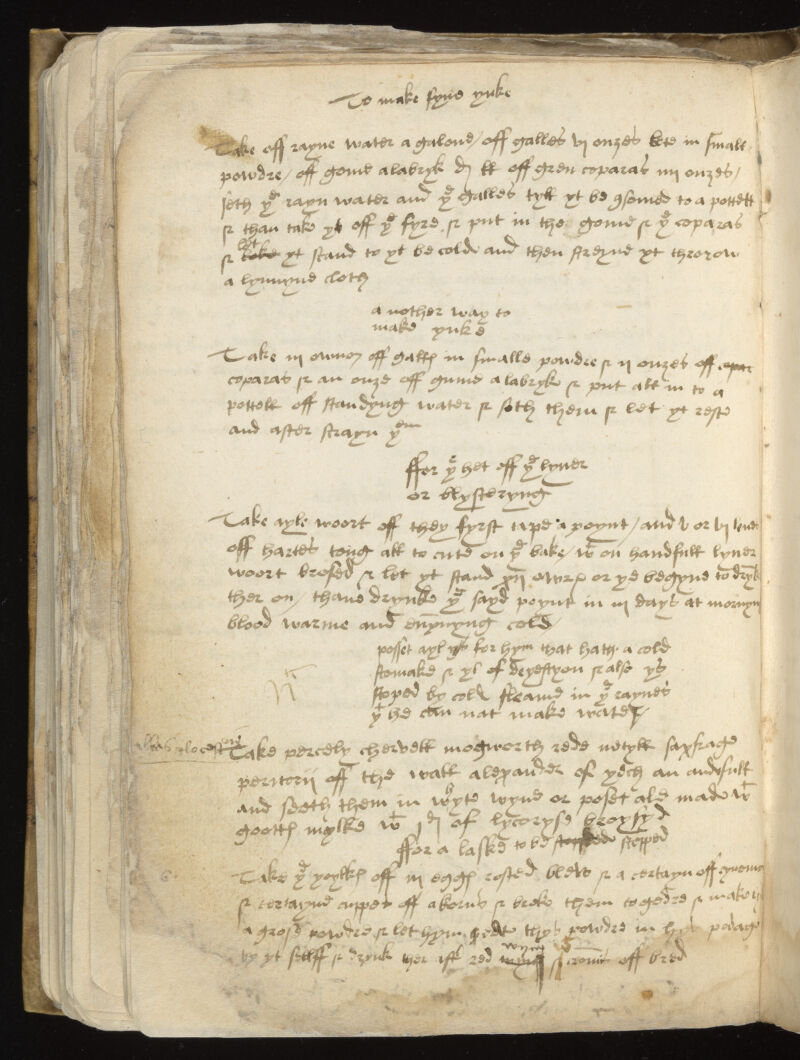 To make fyne ynke
Take off rayne water a galone / off galles vj onzes bete in small
powdre / off gome alabryk dj ll off gren coparas iiij onzes /
seth yͤ rayn water and yͤ galles tyll yt be 9somed to a pottell
& than take yt off yͤ fyre & put in the gome & yͤ coparas
& let yt stand to yt be colde and then streyne yt thorow
a lynnyne cloth
a nother way to
make ynke
Take iij off galles in smalle powdre & ij onzes off
coparas & an onze off gume alabryke & put all in to a
pottell off standyng water & seth them & let yt reste
and after strayn yᵉᵐ
ffor yͤ het off yͤ lyuer
or blysteryng
Take ayle woort off they fyrst tape a poynt / and v or vj leues
off hartes tong all to cute on yͤ bake / wᵗ on handfull lyuer
woort brosed & let yt stand owrs or ye begyne to drynk
ther on / thane drynke yͤ sayd poynt in iij days at mornyn
blood warme and euynyng cold
posset ayl for hym that hath a cold
stomake & yl of deyestyon & also ys
stoped by cold fleame in yͤ raynes
yᵗ he can nat make water
Take percely chervell mogworth rede netyll saxfrage
peritorij off the wall alexander of yech an andfull
and seeth them in whyte wyne or poset ale made wᵗ
gootes mylke wᵗ j dj of lycoryse broysyd
ffor a laske to be stopped
Take yͤ yoylkes off iij egges rosted blew & a certayn off
& certayne cuppes off akorns & broke them togedre & make yt
a grose powdre & let hym eedte thys powdre in hys potage
by yt sellff & drynk ther red wyne & cromes off bred